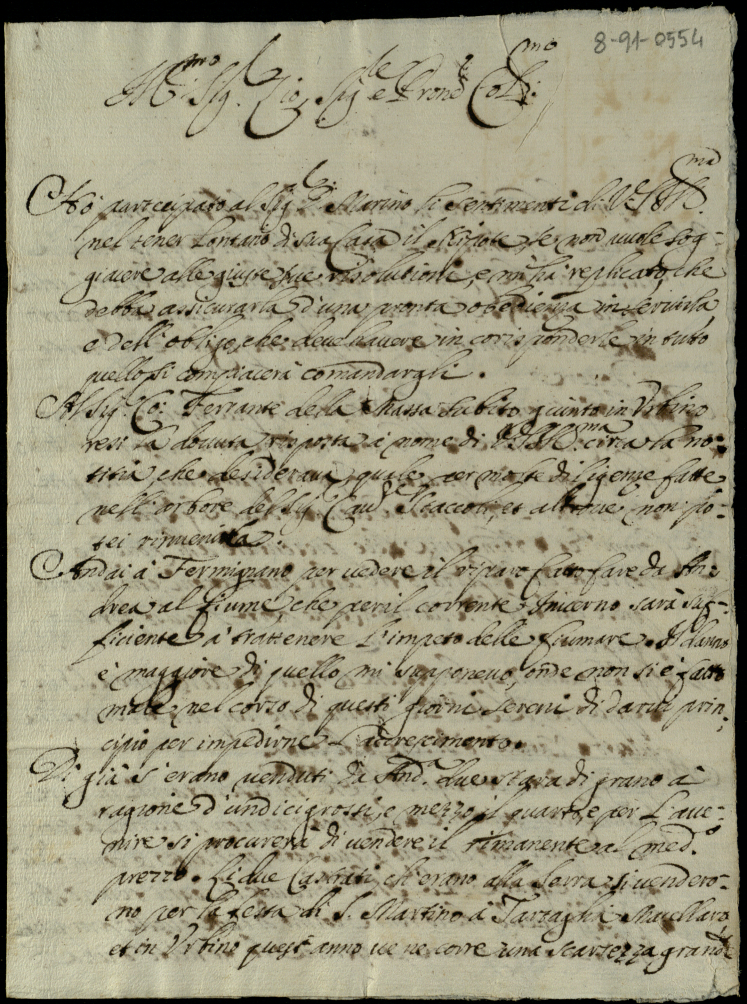 8-91-0554
Ill.mo Sig.r Zio, Sig.re e Pron Col.mo
Hò participato al Sig.r Marino li sentimenti di V.S. Ill.ma
nel tener lontano di sua Casa il se non vuole sog-
giacere alle giuste sue risolutioni, e mi hà replicato, che
debba assicurarla d'una pronta obedienza in servirla,
e dell'obligo, che deve havere in corrisponderle in tutto
quello si compiacerà comandargli.
Al Sig. Co: Ferrante della Massa subito giunto in Urbino
resi la dovuta risposta à nome di V.S. Ill.ma circa la no-
titia, che desiderava, quale per molte diligenze fatte
nell'arbore del Sig. Cav.r Staccoli, et altrove non po-
tei rinvenirla.
Andai à Fermignano per vedere il riparo fatto fare da An-
drea al fiume, che per il corrente Inverno sarà suf-
ficiente à trattenere l'impeto delle fiumare. Il danno
è maggiore di quello mi supponevo, onde non si è fatto
male nel corso di questi giorni sereni di darli prin-
cipio per impedirne l'accrescimento.
Di già s'erano venduti da And.a due stara di grano à
ragione d'undici grossi, e mezzo il quarto, e per l'ave-
nire si procurerà di vendere il rimanente al med.o
prezzo. Li due Castrati ch'erano alla Serra si vendero-
no per la festa di S. Martino à Tartaglia Macellaro
et in Urbino quest'anno ve ne corre una scarsezza grande